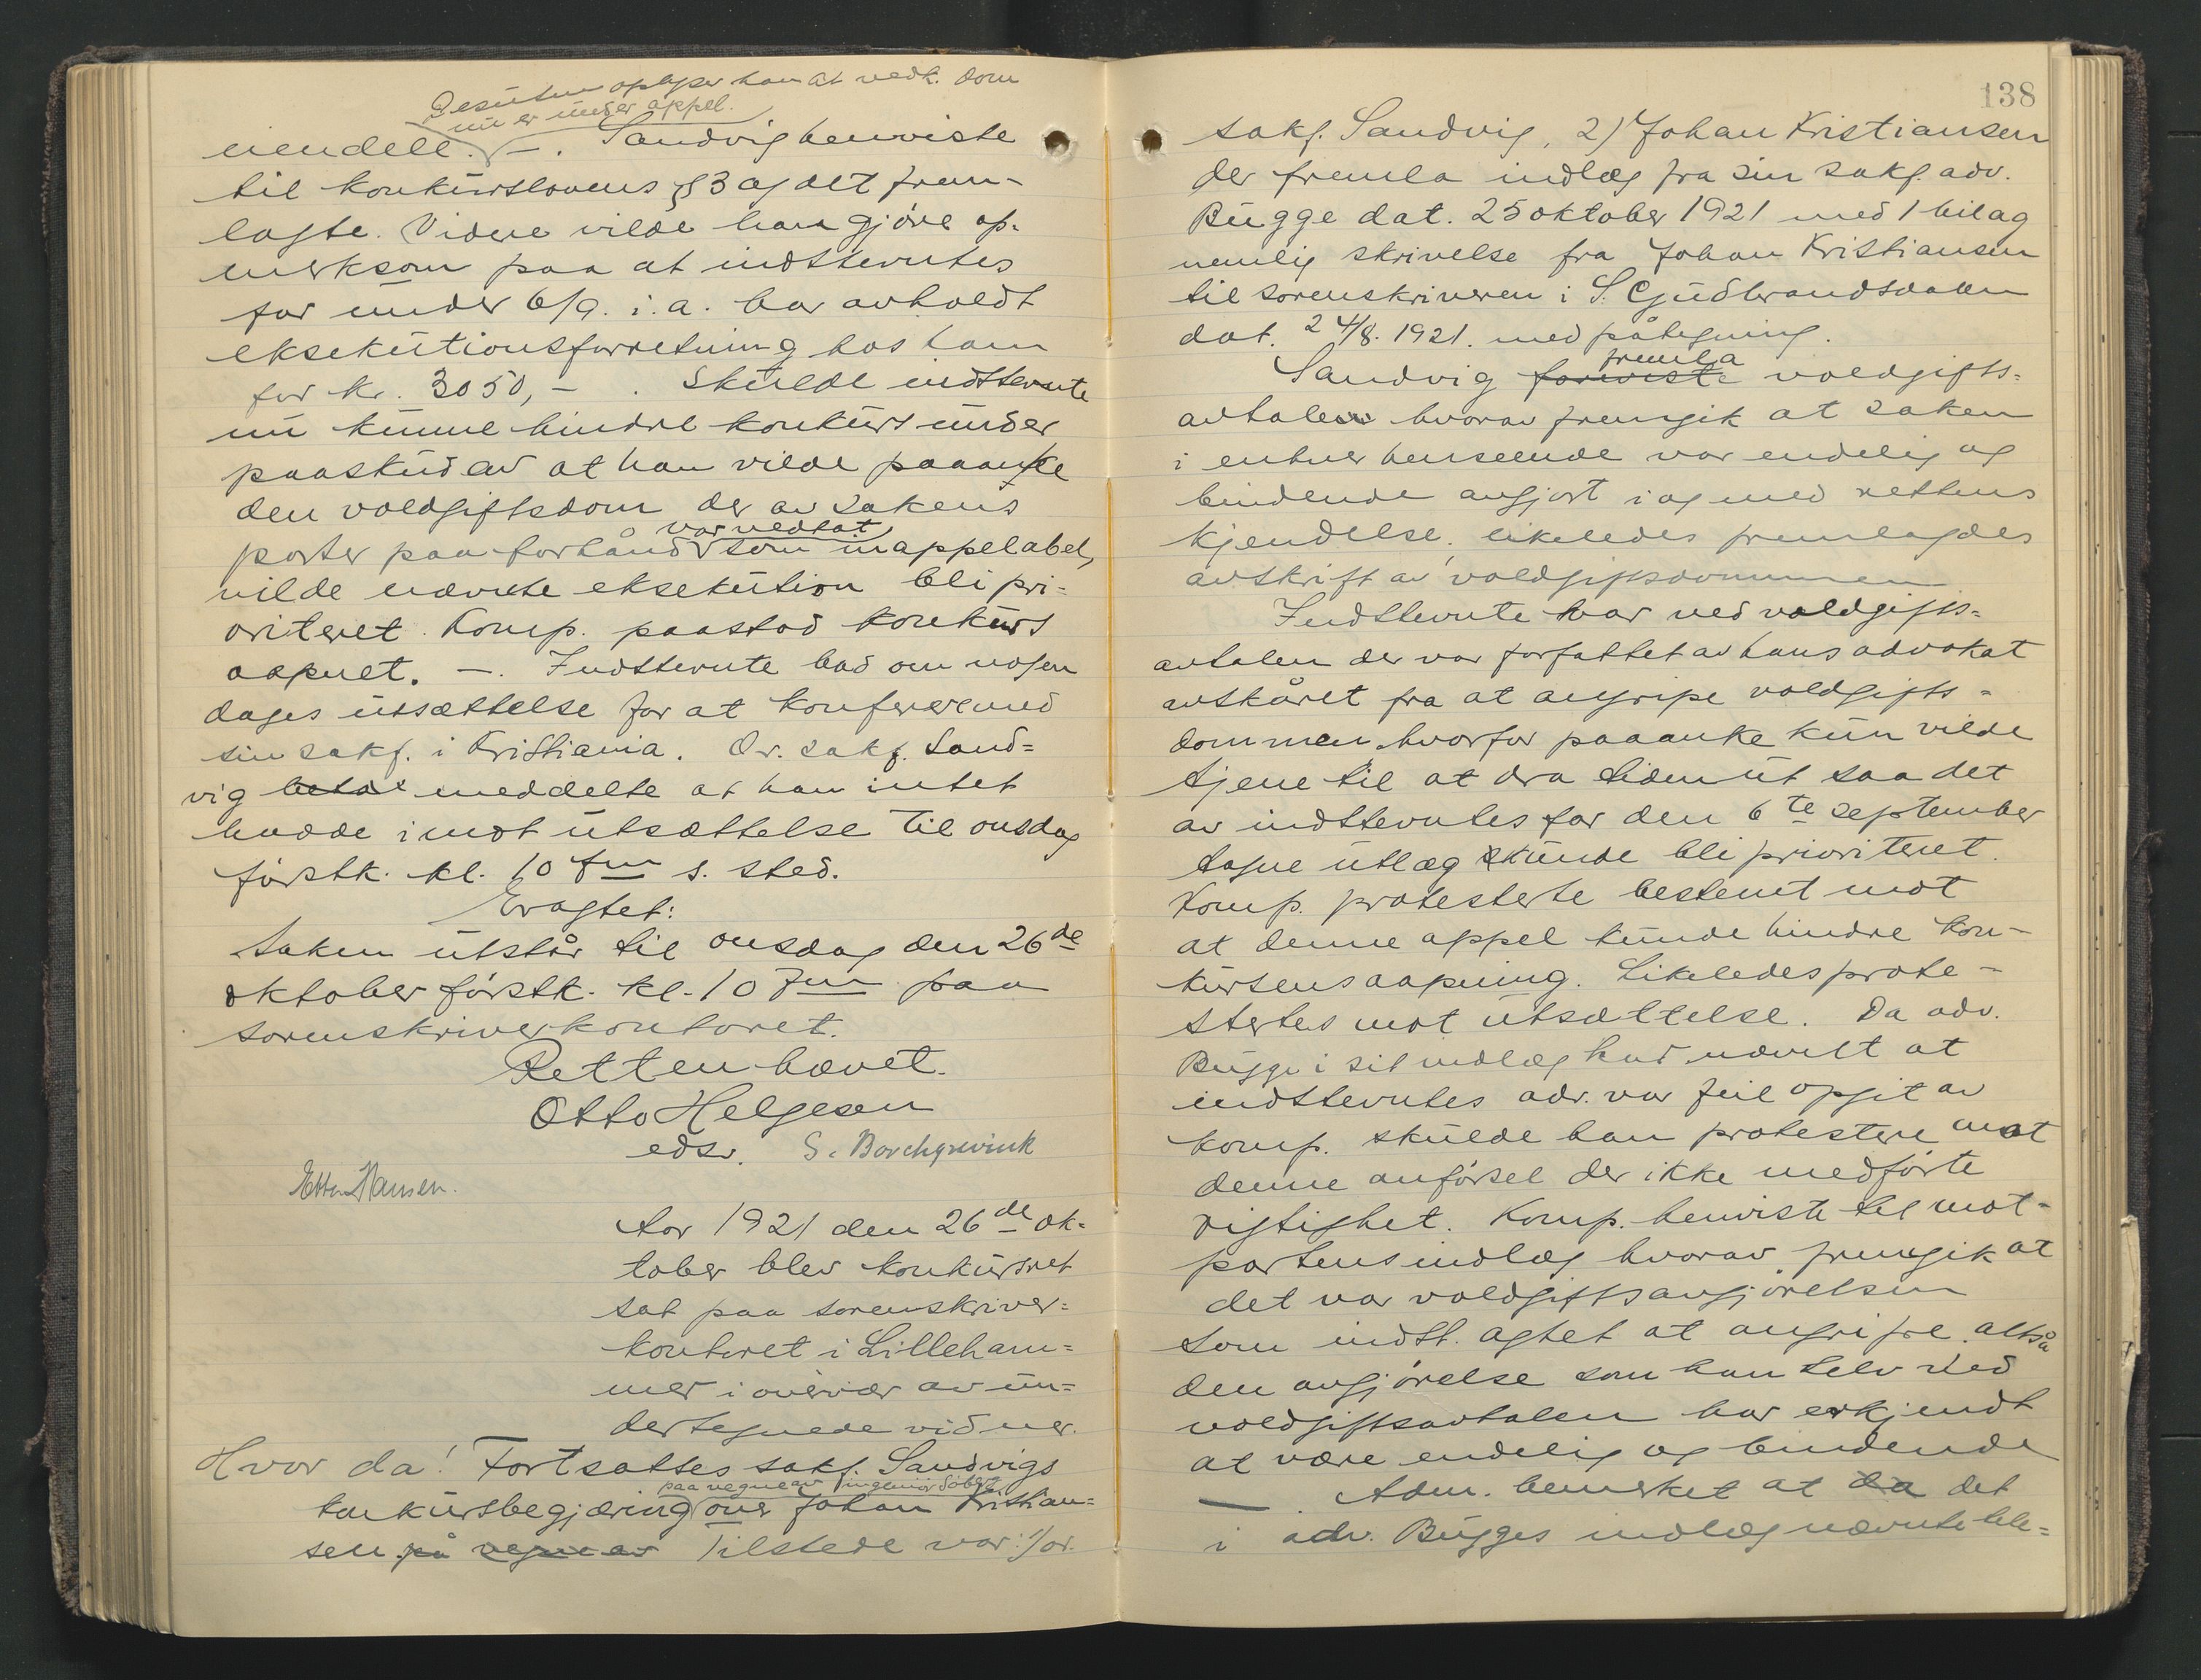 Desuten oplyser han at vedk. dom
nu er under appel.
nendele. —. Sandvig henviste
til konkurslovens § 3 og det frem-
lagte. Videre vilde han gjöre op-
merksom paa at indstevntes
far under 6/9. i. a. har avholdt
eksekutionsforretning hos ham
for kr. 3050,- . Skulde indstevnte
nu kunne hindre konkurs under
paaskud av at han vilde paaanke
den voldgiftsdom der av sakens
parter paa forhånd var vedtat som inappelabel,
vilde nævnte eksekution bli pri-
oriteret. Komp. paastod konkurs
aapnet. —. Indstevnte bad om nogen
dages utsættelse for at konferere med
sin sakf. i Kristiania. Or. sakf. Sand=
vig meddelte at han intet
hadde imot utsættelse til onsdag
förstk. kl. 10 fm s. sted.
Eragtet:
Saken utstår til onsdag den 26de
oktober förstk. kl. 10 fm paa
sorenskriverkontoret.
Retten hævet.
Otto Helgesen
edsv. S. Borchgrevink
Etter Hansen.
Aar 1921 den 26de ok=
tober blev konkursret
sat paa sorenskriver=
kontoret i Lilleham=
mer i overvær av un=
dertegnede vidner.
Hvor da! Fortsattes sakf. Sandvigs
paa vegne av ingeniör
konkursbegjæring over Johan Kristian=
sen. på vegne av Tilstede var: 1/ or.
138
sakf. Sandvig, 2) Johan Kristiansen
der fremla indlæg fra sin sakf. adv.
Bugge dat. 25 oktober 1921 med 1 bilag
nemlig skrivelse fra Johan Kristiansen
til sorenskriveren i S. Gudbrandsdalen
dat. 24/8. 1921. med påtegning.
Sandvig fremla voldgifts=
avtalen hvorav fremgik at saken
i enhver henseende var endelig og
bindende avgjort i og med rettens
kjendelse, likeledes fremlagdes
avskrift av voldgiftsdommen
Indstevnte var ved voldgifts=
avtalen der var forfattet av hans advokat
avskåret fra at angripe voldgifts=
dommen hvorfor paaanke kun vilde
tjene til at dra tiden ut saa det
av indstevntes far den 6te september
tagne utlæg kunde bli prioriteret.
Komp. protesterte bestemt mot
at denne appel kunde hindre kon-
kursens aapning. Likeledes prote-
stertes mot utsættelse. Da adv.
Bugge i sit indlæg had nævnt at
indstevntes adr. var feil opgit av
komp. skulde han protestere mot
denne anförsel der ikke medförte
rigtighet. Komp. henviste til mot-
partens indlæg hvorav fremgik at
det var voldgiftsavgjörelsen
som indst. agtet at angripe altså
den avgjörelse som han selv ved
voldgiftsavtalen har erkjendt
at være endelig og bindende
—. Adm. bemerket at da det
i adv. Bugges indlæg nævnte tele=